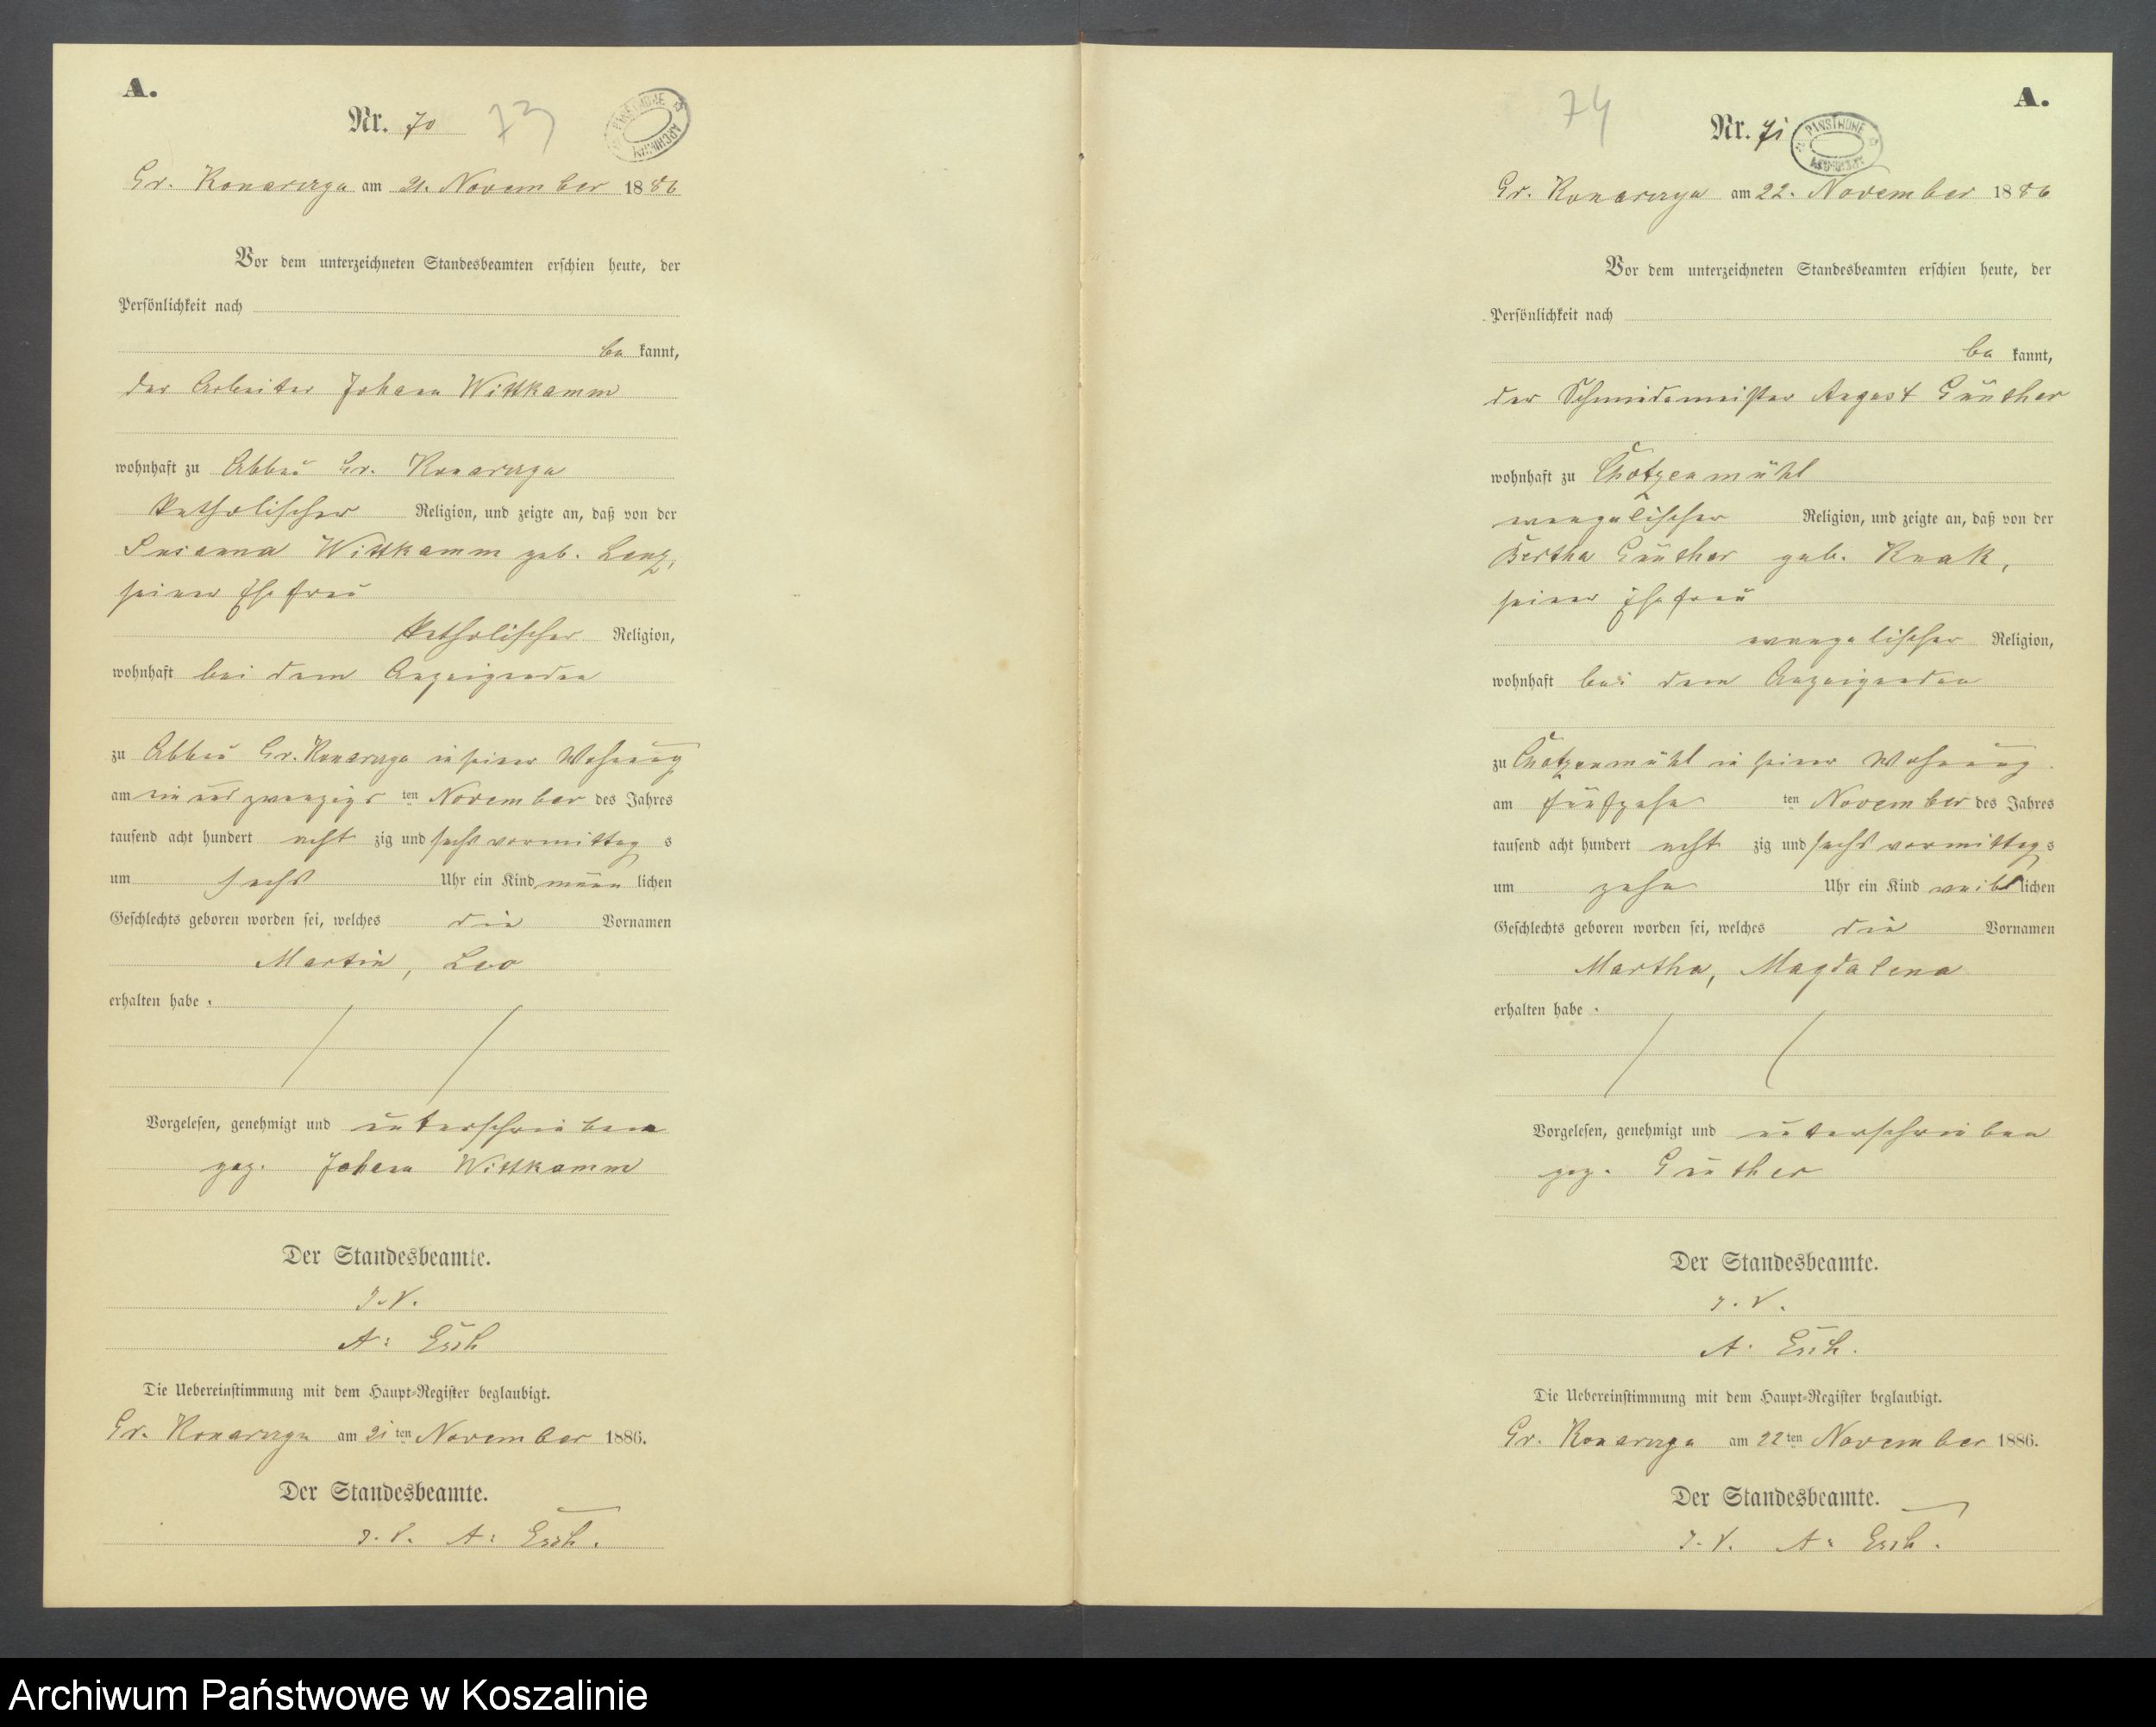 A.
Nr. 70 73
PANSTWOWE ARCHIWUM
Gr. Konarczyn am 21. November 1886
Vor dem unterzeichneten Standesbeamten erschien heute, der
Persönlichkeit nach
be kannt,
der Arbeiter Johann Wittkamm
wohnhaft zu Abbau Gr. Konarczyn
katholischer Religion, und zeigte an, daß von der
Susanna Wittkamm geb. Lenz,
seiner Ehefrau
katholischer Religion,
wohnhaft bei dem Anzeigenden
zu Abbau Gr. Konarczyn in seiner Wohnung
am ein und zwanzigs ten November des Jahres
tausend acht hundert acht zig und sechs vormittag s
um sechs Uhr ein Kind männ lichen
Geschlechts geboren worden sei, welches die Vornamen
Martin, Leo
erhalten habe.
Vorgelesen, genehmigt und unterschrieben
gez. Johann Wittkamm
Der Standesbeamte.
J. V.
A: Esch
Die Uebereinstimmung mit dem Haupt-Register beglaubigt.
Gr. Konarczyn am 21ten November 1886.
Der Standesbeamte.
J. V. A: Esch.
74 A.
Nr. 71
PANSTWOWE ARCHIWUM
Gr. Konarczyn am 22. November 1886
Vor dem unterzeichneten Standesbeamten erschien heute, der
Persönlichkeit nach
be kannt,
der Schmiedemeister August Günther
wohnhaft zu Chotzenmühl
evangelischer Religion, und zeigte an, daß von der
Bertha Günther geb. Knak,
seiner Ehefrau
evangelischer Religion,
wohnhaft bei dem Anzeigenden
zu Chotzenmühl in seiner Wohnung
am fünfzehn ten November des Jahres
tausend acht hundert acht zig und sechs vormittag s
um zehn Uhr ein Kind weib lichen
Geschlechts geboren worden sei, welches die Vornamen
Martha, Magdalena
erhalten habe.
Vorgelesen, genehmigt und unterschrieben
gez. Günther
Der Standesbeamte.
J. V.
A. Esch.
Die Uebereinstimmung mit dem Haupt-Register beglaubigt.
Gr. Konarczyn am 22ten November 1886.
Der Standesbeamte.
J. V. A: Esch.
Archiwum Państwowe w Koszalinie